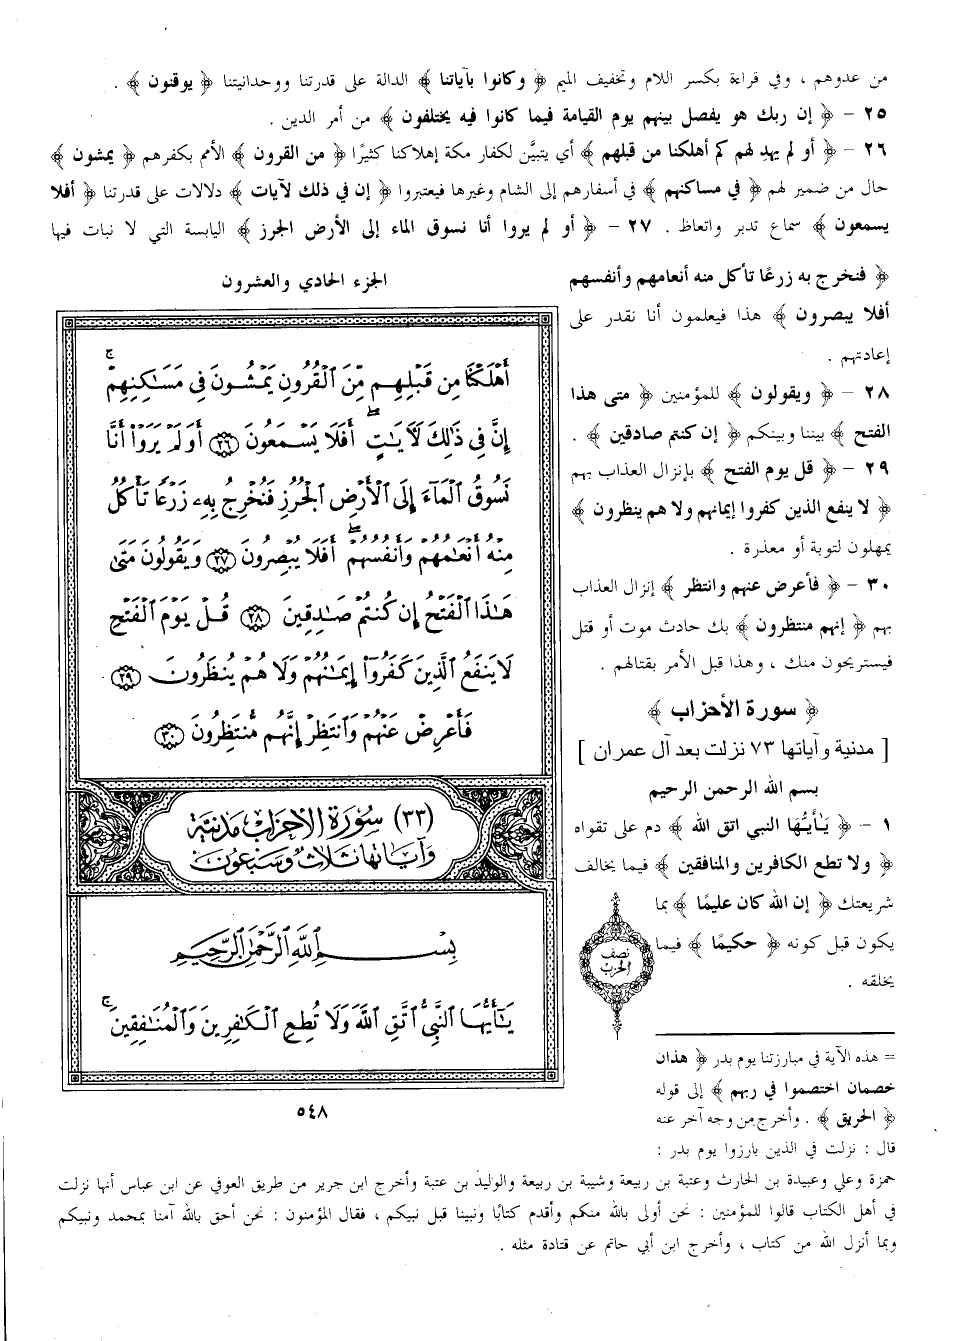 من عدوهم ، وفي قراءة بكسر اللام وتخفيف الميم ﴿ وكانوا بآياتنا ﴾ الدالة على قدرتنا ووحدانيتنا ﴿ يوقنون ﴾ .
٢٥ – ﴿ إن ربك هو يفصل بينهم يوم القيامة فيما كانوا فيه يختلفون ﴾ من أمر الدين .
٢٦ – ﴿ أو لم يهد لهم كم أهلكنا من قبلهم ﴾ أي يتبيَّن لكفار مكة إهلاكنا كثيرًا ﴿ من القرون ﴾ الأمم بكفرهم ﴿ يمشون ﴾
حال من ضمير لهم ﴿ في مساكنهم ﴾ في أسفارهم إلى الشام وغيرها فيعتبروا ﴿ إن في ذلك لآيات ﴾ دلالات على قدرتنا ﴿ أفلا
يسمعون ﴾ سماع تدبر واتعاظ . ٢٧ – ﴿ أو لم يروا أنا نسوق الماء إلى الأرض الجرز ﴾ اليابسة التي لا نبات فيها
﴿ فنخرج به زرعًا تأكل منه أنعامهم وأنفسهم
أفلا يبصرون ﴾ هذا فيعلمون أنا نقدر على
إعادتهم .
٢٨ – ﴿ ويقولون ﴾ للمؤمنين ﴿ متى هذا
الفتح ﴾ بيننا وبينكم ﴿ إن كنتم صادقين ﴾ .
٢٩ – ﴿ قل يوم الفتح ﴾ بإنزال العذاب بهم
﴿ لا ينفع الذين كفروا إيمانهم ولا هم ينظرون ﴾
يمهلون لتوبة أو معذرة .
٣٠ – ﴿ فأعرض عنهم وانتظر ﴾ إنزال العذاب
بهم ﴿ إنهم منتظرون ﴾ بك حادث موت أو قتل
فيستريحون منك ، وهذا قبل الأمر بقتالهم .
﴿ سورة الأحزاب ﴾
[ مدنية وآياتها ٧٣ نزلت بعد آل عمران ]
بسم الله الرحمن الرحيم
١ – ﴿ يَٰأيُّها النبي اتق الله ﴾ دم على تقواه
﴿ ولا تطع الكافرين والمنافقين ﴾ فيما يخالف
شريعتك ﴿ إن الله كان عليمًا ﴾ بما
يكون قبل كونه ﴿ حكيمًا ﴾ فيما
يخلقه .
نصف
الحزب
الجزء الحادي والعشرون
أَهْلَكْنَا مِن قَبْلِهِم مِّنَ ٱلْقُرُونِ يَمْشُونَ فِى مَسَٰكِنِهِمْ ۚ
إِنَّ فِى ذَٰلِكَ لَءَايَٰتٍ ۖ أَفَلَا يَسْمَعُونَ ﴿٢٦﴾ أَوَلَمْ يَرَوْا۟ أَنَّا
نَسُوقُ ٱلْمَآءَ إِلَى ٱلْأَرْضِ ٱلْجُرُزِ فَنُخْرِجُ بِهِۦ زَرْعًا تَأْكُلُ
مِنْهُ أَنْعَٰمُهُمْ وَأَنفُسُهُمْ ۖ أَفَلَا يُبْصِرُونَ ﴿٢٧﴾ وَيَقُولُونَ مَتَىٰ
هَٰذَا ٱلْفَتْحُ إِن كُنتُمْ صَٰدِقِينَ ﴿٢٨﴾ قُلْ يَوْمَ ٱلْفَتْحِ
لَا يَنفَعُ ٱلَّذِينَ كَفَرُوٓا۟ إِيمَٰنُهُمْ وَلَا هُمْ يُنظَرُونَ ﴿٢٩﴾
فَأَعْرِضْ عَنْهُمْ وَٱنتَظِرْ إِنَّهُم مُّنتَظِرُونَ ﴿٣٠﴾
(٣٣) سُورَةُ الأحزاب مَدَنيَّة
وَآيَاتها ثلاث وَسَبعُون
بِسْمِ ٱللَّهِ ٱلرَّحْمَٰنِ ٱلرَّحِيمِ
يَٰٓأَيُّهَا ٱلنَّبِىُّ ٱتَّقِ ٱللَّهَ وَلَا تُطِعِ ٱلْكَٰفِرِينَ وَٱلْمُنَٰفِقِينَ ۚ
٥٤٨
= هذه الآية في مبارزتنا يوم بدر ﴿ هذان
خصمان اختصموا في ربهم ﴾ إلى قوله
﴿ الحريق ﴾ . وأخرج من وجه آخر عنه
قال : نزلت في الذين بارزوا يوم بدر :
حمزة وعلي وعبيدة بن الحارث وعتبة بن ربيعة وشيبة بن ربيعة والوليد بن عتبة وأخرج ابن جرير من طريق العوفي عن ابن عباس أنها نزلت
في أهل الكتاب قالوا للمؤمنين : نحن أولى بالله منكم وأقدم كتابًا ونبينا قبل نبيكم ، فقال المؤمنون : نحن أحق بالله آمنا بمحمد ونبيكم
وبما أنزل الله من كتاب ، وأخرج ابن أبي حاتم عن قتادة مثله .